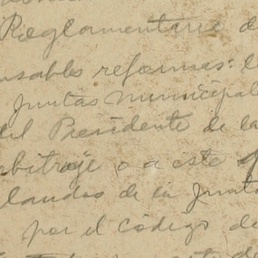 Reglamentaria d
nsables reformas: l
Juntas Municipal
del Presidente de la
bitraje o a este
laudos de la Junta
por el código de